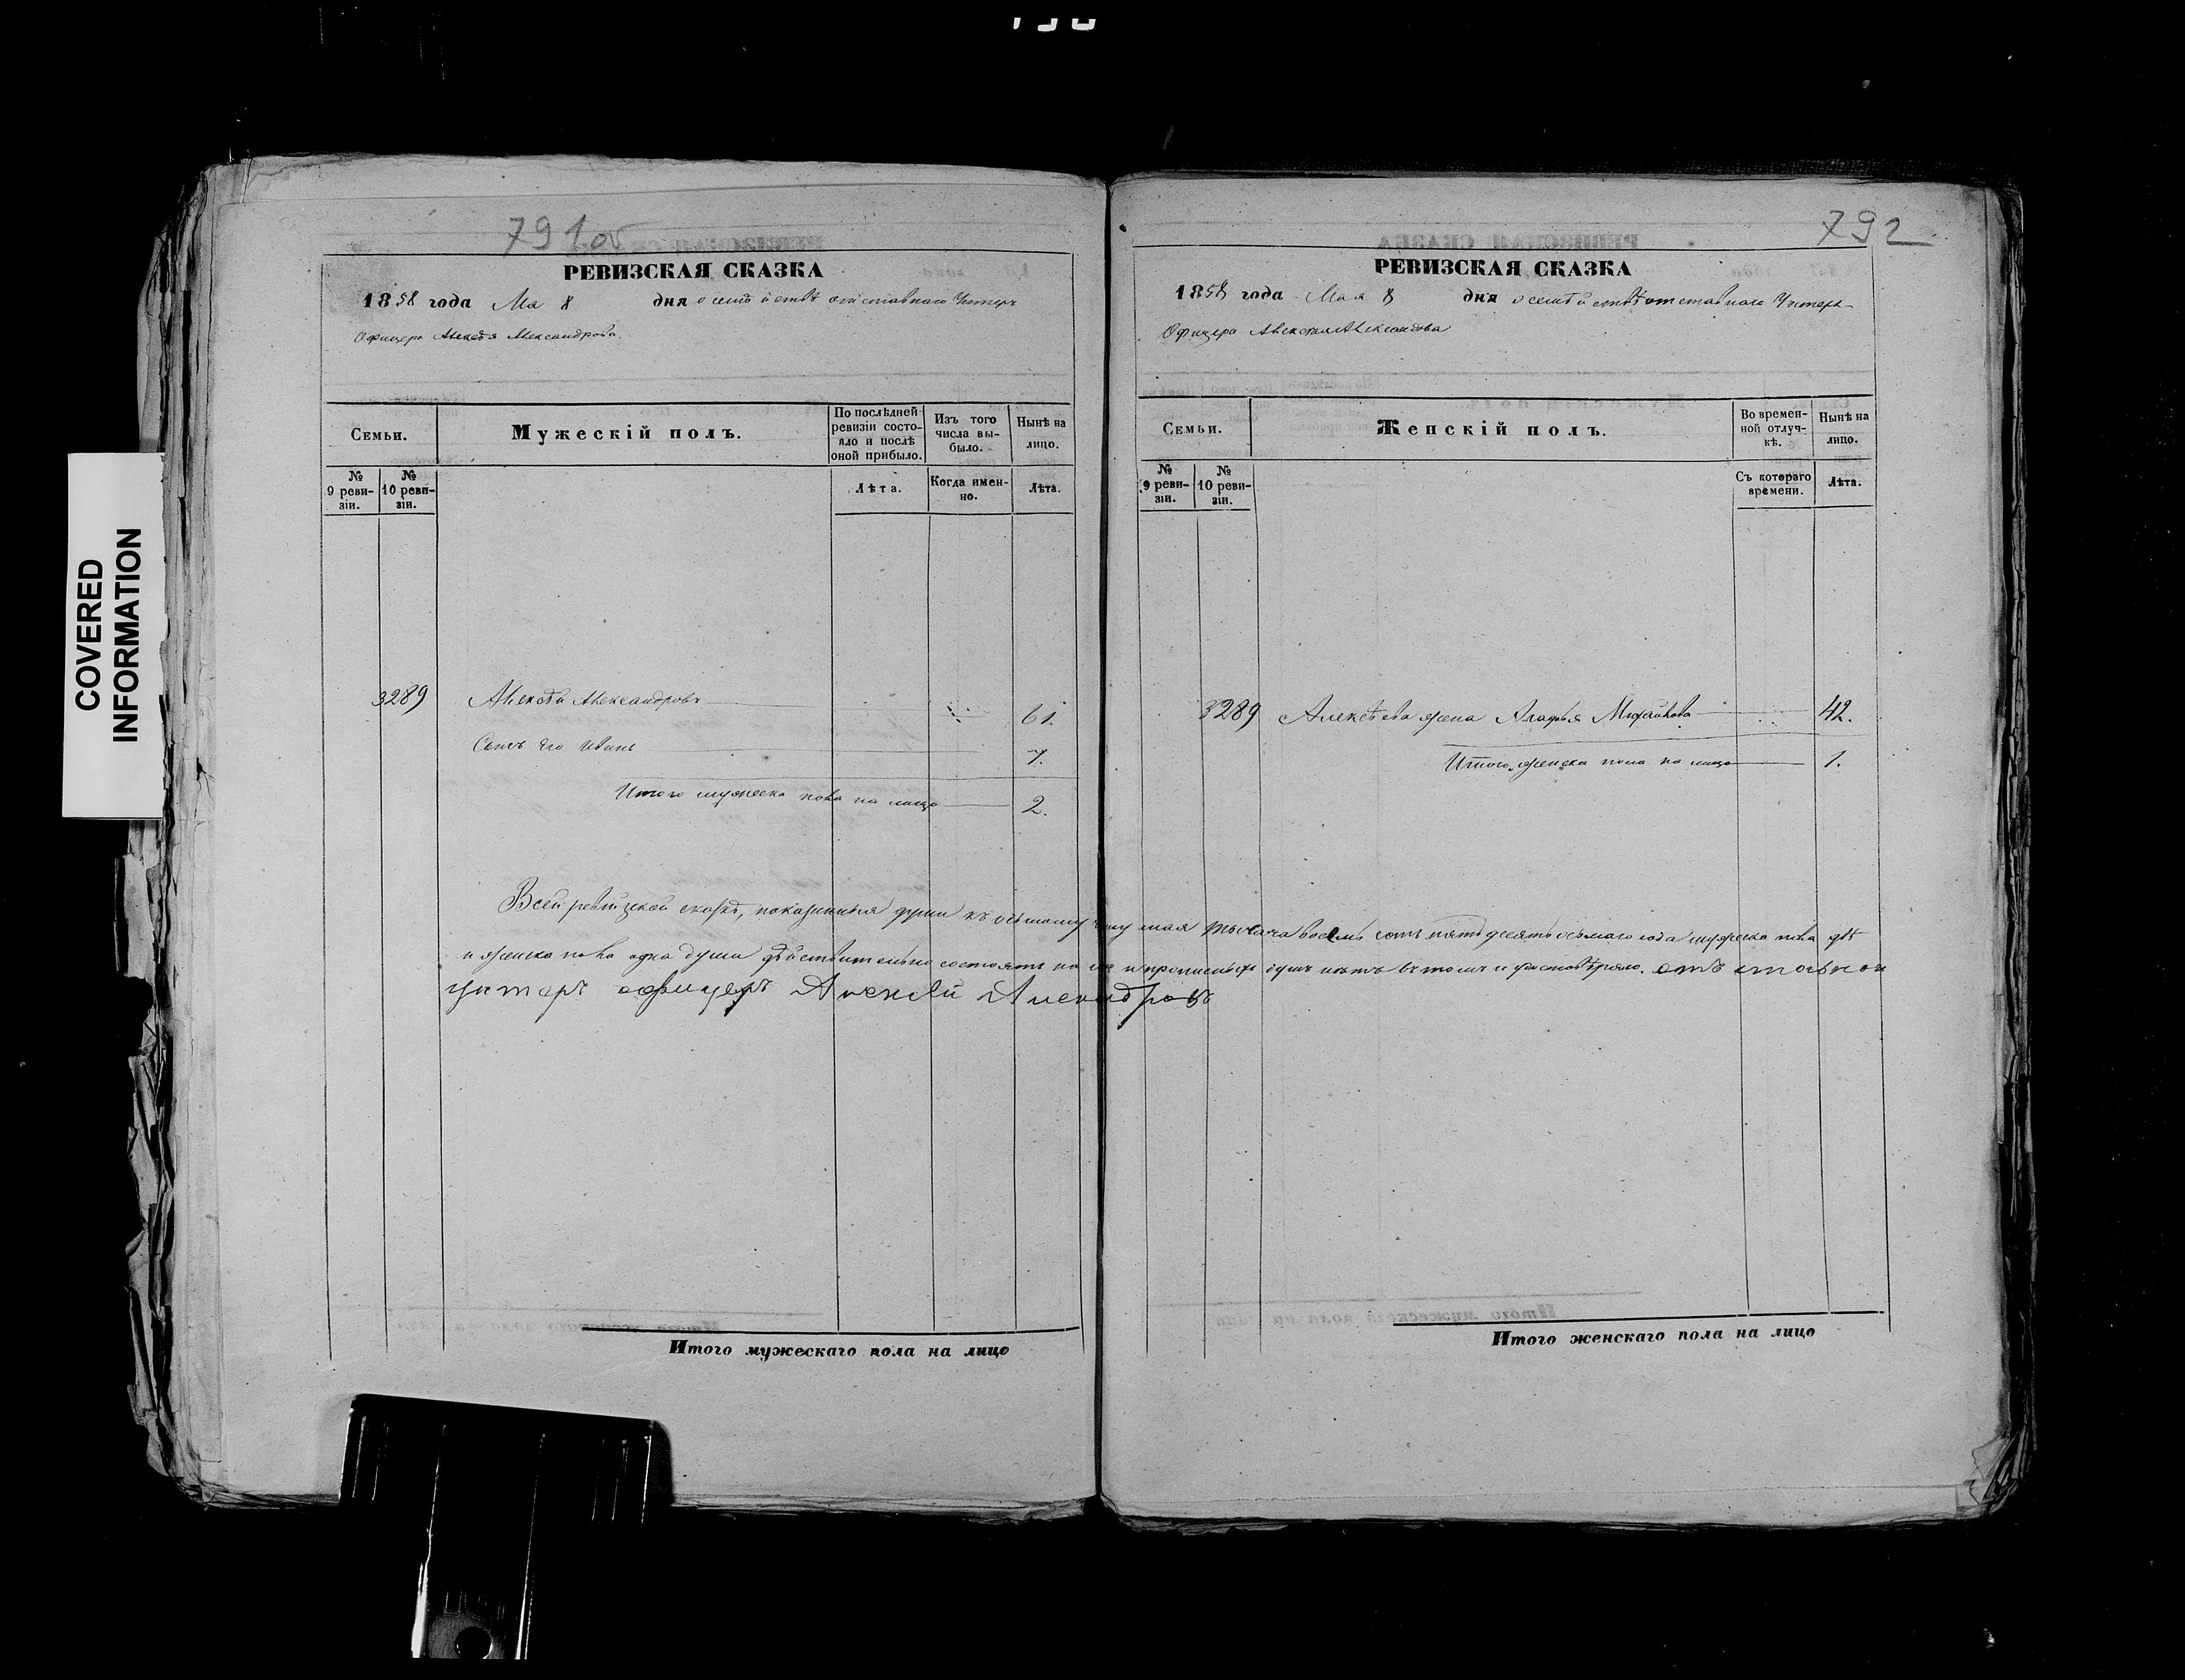 COVERED
INFORMATION
791 об
РЕВИЗСКАЯ СКАЗКА
1858 года Мая 8 дня о семѣйствѣ отставнаго Унтеръ
Офицера Алексѣя Александрова.
Семьи.
Мужескій полъ.
По послѣдней ревизіи состояло и послѣ оной прибыло.
Изъ того числа выбыло.
Нынѣ на лицо.
№ 9 ревизіи.
№ 10 ревизіи.
Лѣта.
Когда именно.
Лѣта.
3289 Алексѣй Александровъ 61.
Сынъ Его Иванъ 7.
Итого мужеска пола на лицо 2.
792
РЕВИЗСКАЯ СКАЗКА
1858 года Мая 8 дня о семѣйствѣ отставнаго Унтеръ
Офицера Алексѣя Александрова
Семьи.
Женскій полъ.
Во временной отлучкѣ.
Нынѣ на лицо.
№ 9 ревизіи.
№ 10 ревизіи.
Съ котораго времени.
Лѣта.
3289 Алексѣева жена Агафья Михайлова 42.
Итого женска пола на лицо 1.
Всей ревизской сказкѣ, показанныя души къ осьмому числу мая тысяча восемь сотъ пятьдесятъ осьмаго года мужеска пола двѣ
и женска пола одна души дѣйствительно состоятъ на лицо и прописныхъ душъ нѣтъ въ томъ и удостовѣряю. отъ ставной
унтеръ офицеръ Алексѣй Александровъ
Итого мужескаго пола на лицо
Итого женскаго пола на лицо